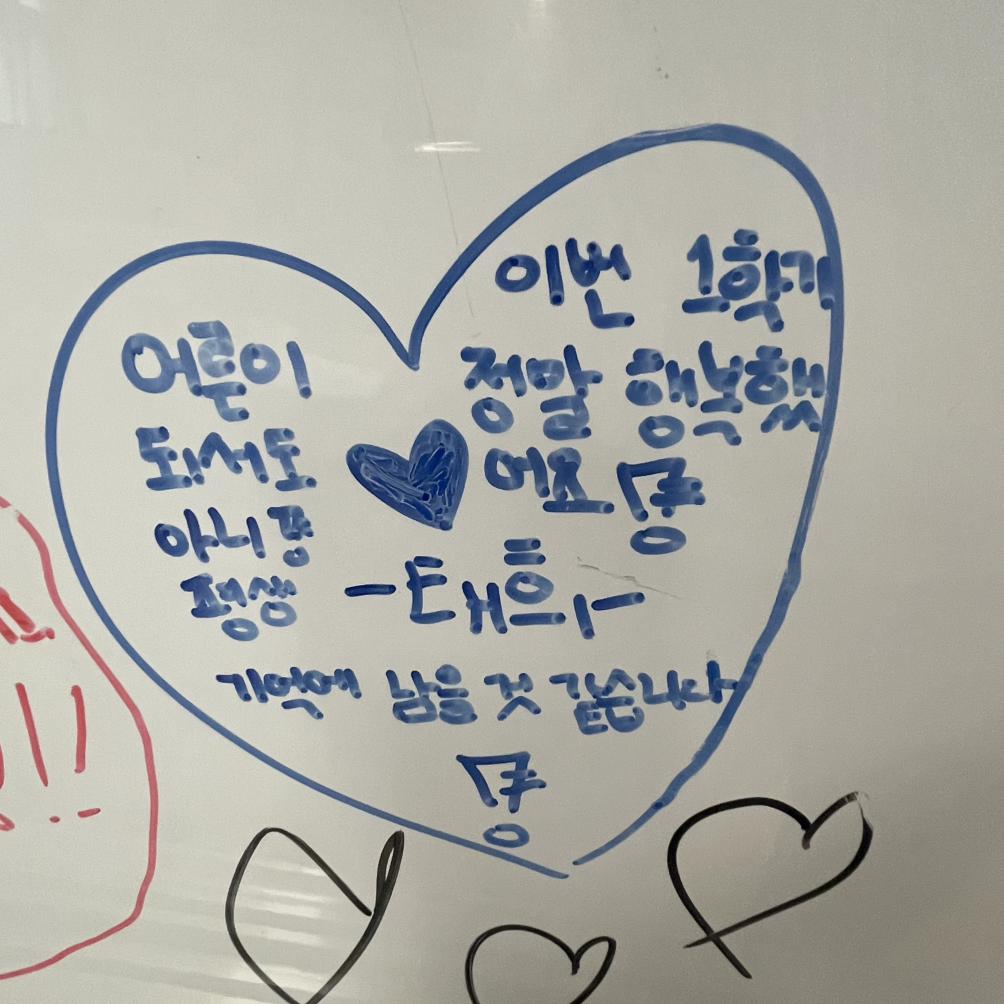 이번 1학기
정말 행복했
어요
어른이
되서도
아니
평생
-태희-
기억에 남을 것 같습니다